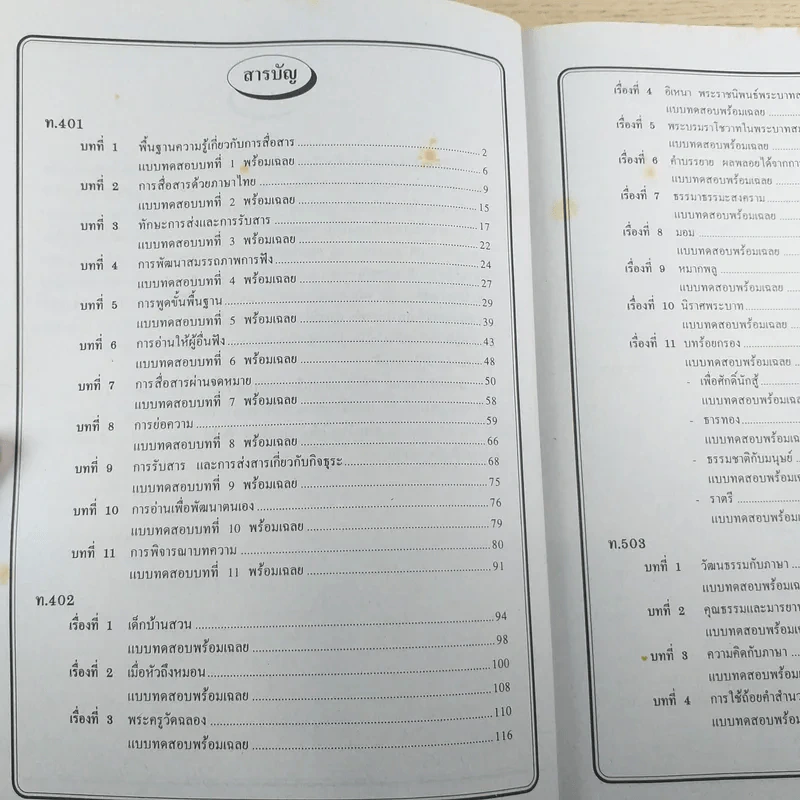 สารบัญ
ท.401
บทที่ 1 พื้นฐานความรู้เกี่ยวกับการสื่อสาร 2
แบบทดสอบบทที่ 1 พร้อมเฉลย 6
บทที่ 2 การสื่อสารด้วยภาษาไทย 9
แบบทดสอบบทที่ 2 พร้อมเฉลย 15
บทที่ 3 ทักษะการส่งและการรับสาร 17
แบบทดสอบบทที่ 3 พร้อมเฉลย 22
บทที่ 4 การพัฒนาสมรรถภาพการฟัง 24
แบบทดสอบบทที่ 4 พร้อมเฉลย 27
บทที่ 5 การพูดขั้นพื้นฐาน 29
แบบทดสอบบทที่ 5 พร้อมเฉลย 39
บทที่ 6 การอ่านให้ผู้อื่นฟัง 43
แบบทดสอบบทที่ 6 พร้อมเฉลย 48
บทที่ 7 การสื่อสารผ่านจดหมาย 50
แบบทดสอบบทที่ 7 พร้อมเฉลย 58
บทที่ 8 การย่อความ 59
แบบทดสอบบทที่ 8 พร้อมเฉลย 66
บทที่ 9 การรับสาร และการส่งสารเกี่ยวกับกิจธุระ 68
แบบทดสอบบทที่ 9 พร้อมเฉลย 75
บทที่ 10 การอ่านเพื่อพัฒนาตนเอง 76
แบบทดสอบบทที่ 10 พร้อมเฉลย 79
บทที่ 11 การพิจารณาบทความ 80
แบบทดสอบบทที่ 11 พร้อมเฉลย 91
ท.402
เรื่องที่ 1 เด็กบ้านสวน 94
แบบทดสอบพร้อมเฉลย 98
เรื่องที่ 2 เมื่อหัวถึงหมอน 100
แบบทดสอบพร้อมเฉลย 108
เรื่องที่ 3 พระครูวัดฉลอง 110
แบบทดสอบพร้อมเฉลย 116
เรื่องที่ 4 อิเหนา พระราชนิพนธ์พระบาท
แบบทดสอบพร้อมเฉลย
เรื่องที่ 5 พระบรมราโชวาทในพระบาท
แบบทดสอบพร้อมเฉลย
เรื่องที่ 6 คำบรรยาย ผลพลอยได้จาก
แบบทดสอบพร้อมเฉลย
เรื่องที่ 7 ธรรมาธรรมะสงคราม
แบบทดสอบพร้อมเฉลย
เรื่องที่ 8 มอม
แบบทดสอบพร้อมเฉลย
เรื่องที่ 9 หมากพลู
แบบทดสอบพร้อมเฉลย
เรื่องที่ 10 นิราศพระบาท
แบบทดสอบพร้อมเฉลย
เรื่องที่ 11 บทร้อยกรอง
แบบทดสอบพร้อมเฉลย
- เพื่อศักดิ์นักสู้
แบบทดสอบพร้อมเฉลย
- ธารทอง
แบบทดสอบพร้อมเฉ
- ธรรมชาติกับมนุษย์
แบบทดสอบพร้อม
- ราตรี
แบบทดสอบพร้อม
ท.503
บทที่ 1 วัฒนธรรมกับภาษา
แบบทดสอบพร้อมเฉล
บทที่ 2 คุณธรรมและมารยา
แบบทดสอบพร้อม
บทที่ 3 ความคิดกับภาษา
แบบทดสอบพร้อม
บทที่ 4 การใช้ถ้อยคำสำนว
แบบทดสอบพร้อม